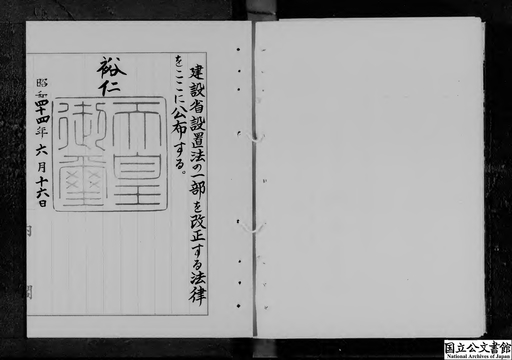 建設省設置法の一部を改正する法律
をここに公布する。
裕仁
天皇
御璽
昭和四十四年六月十六日
内閣
国立公文書館
National Archives of Japan